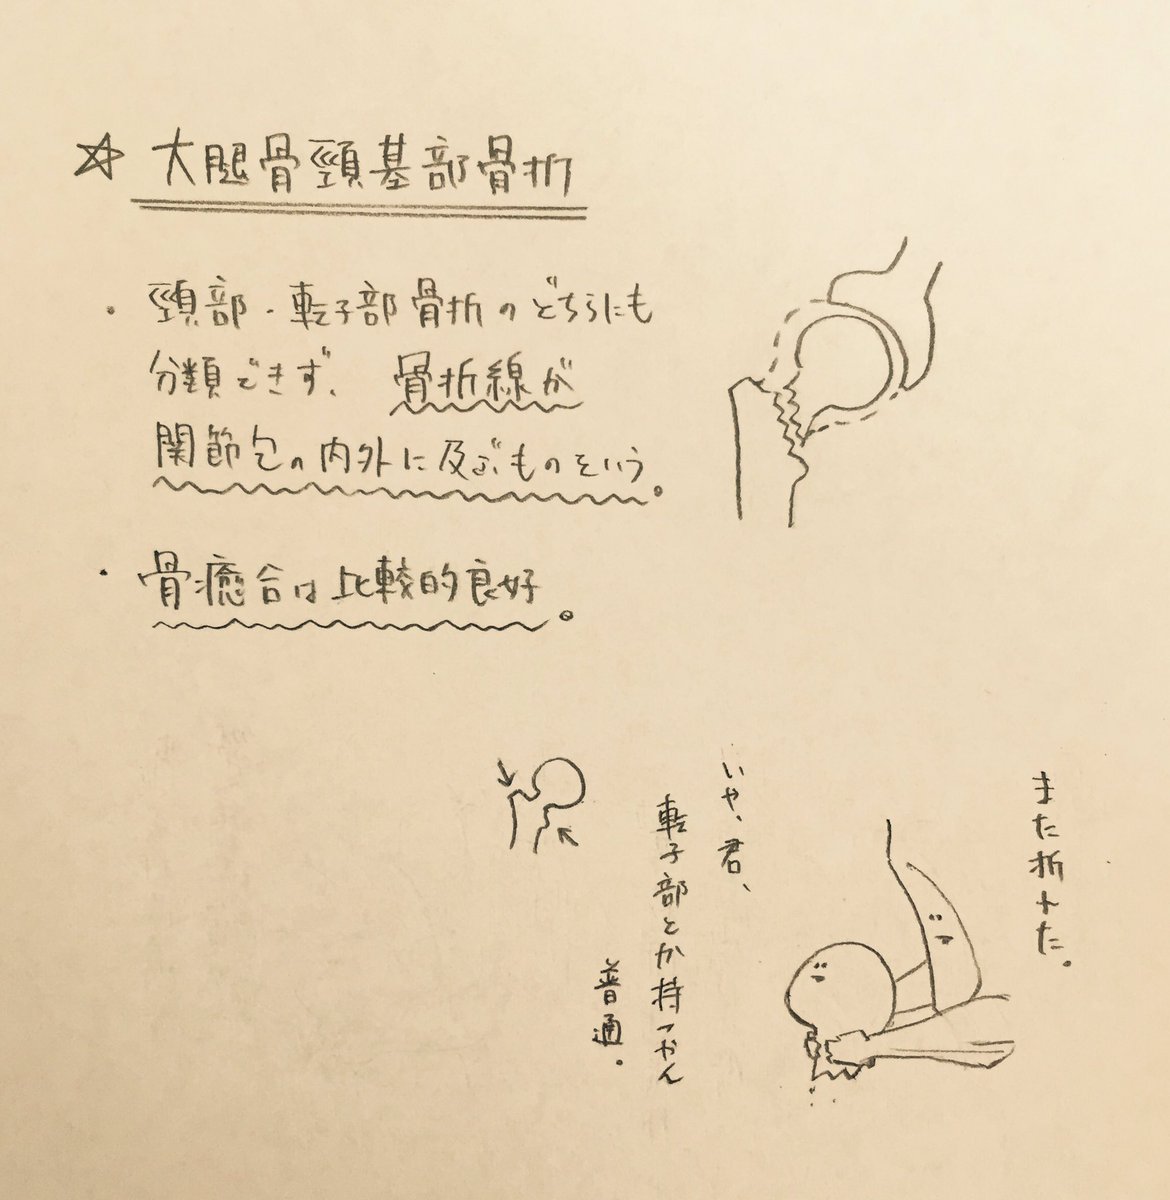 ☆ 大腿骨頸基部骨折
・頸部・転子部骨折のどちらにも
分類できず、骨折線が
関節包の内外に及ぶものをいう。
・骨癒合は比較的良好。
また折れた。
いや、君、
転子部とか持つやん
普通。